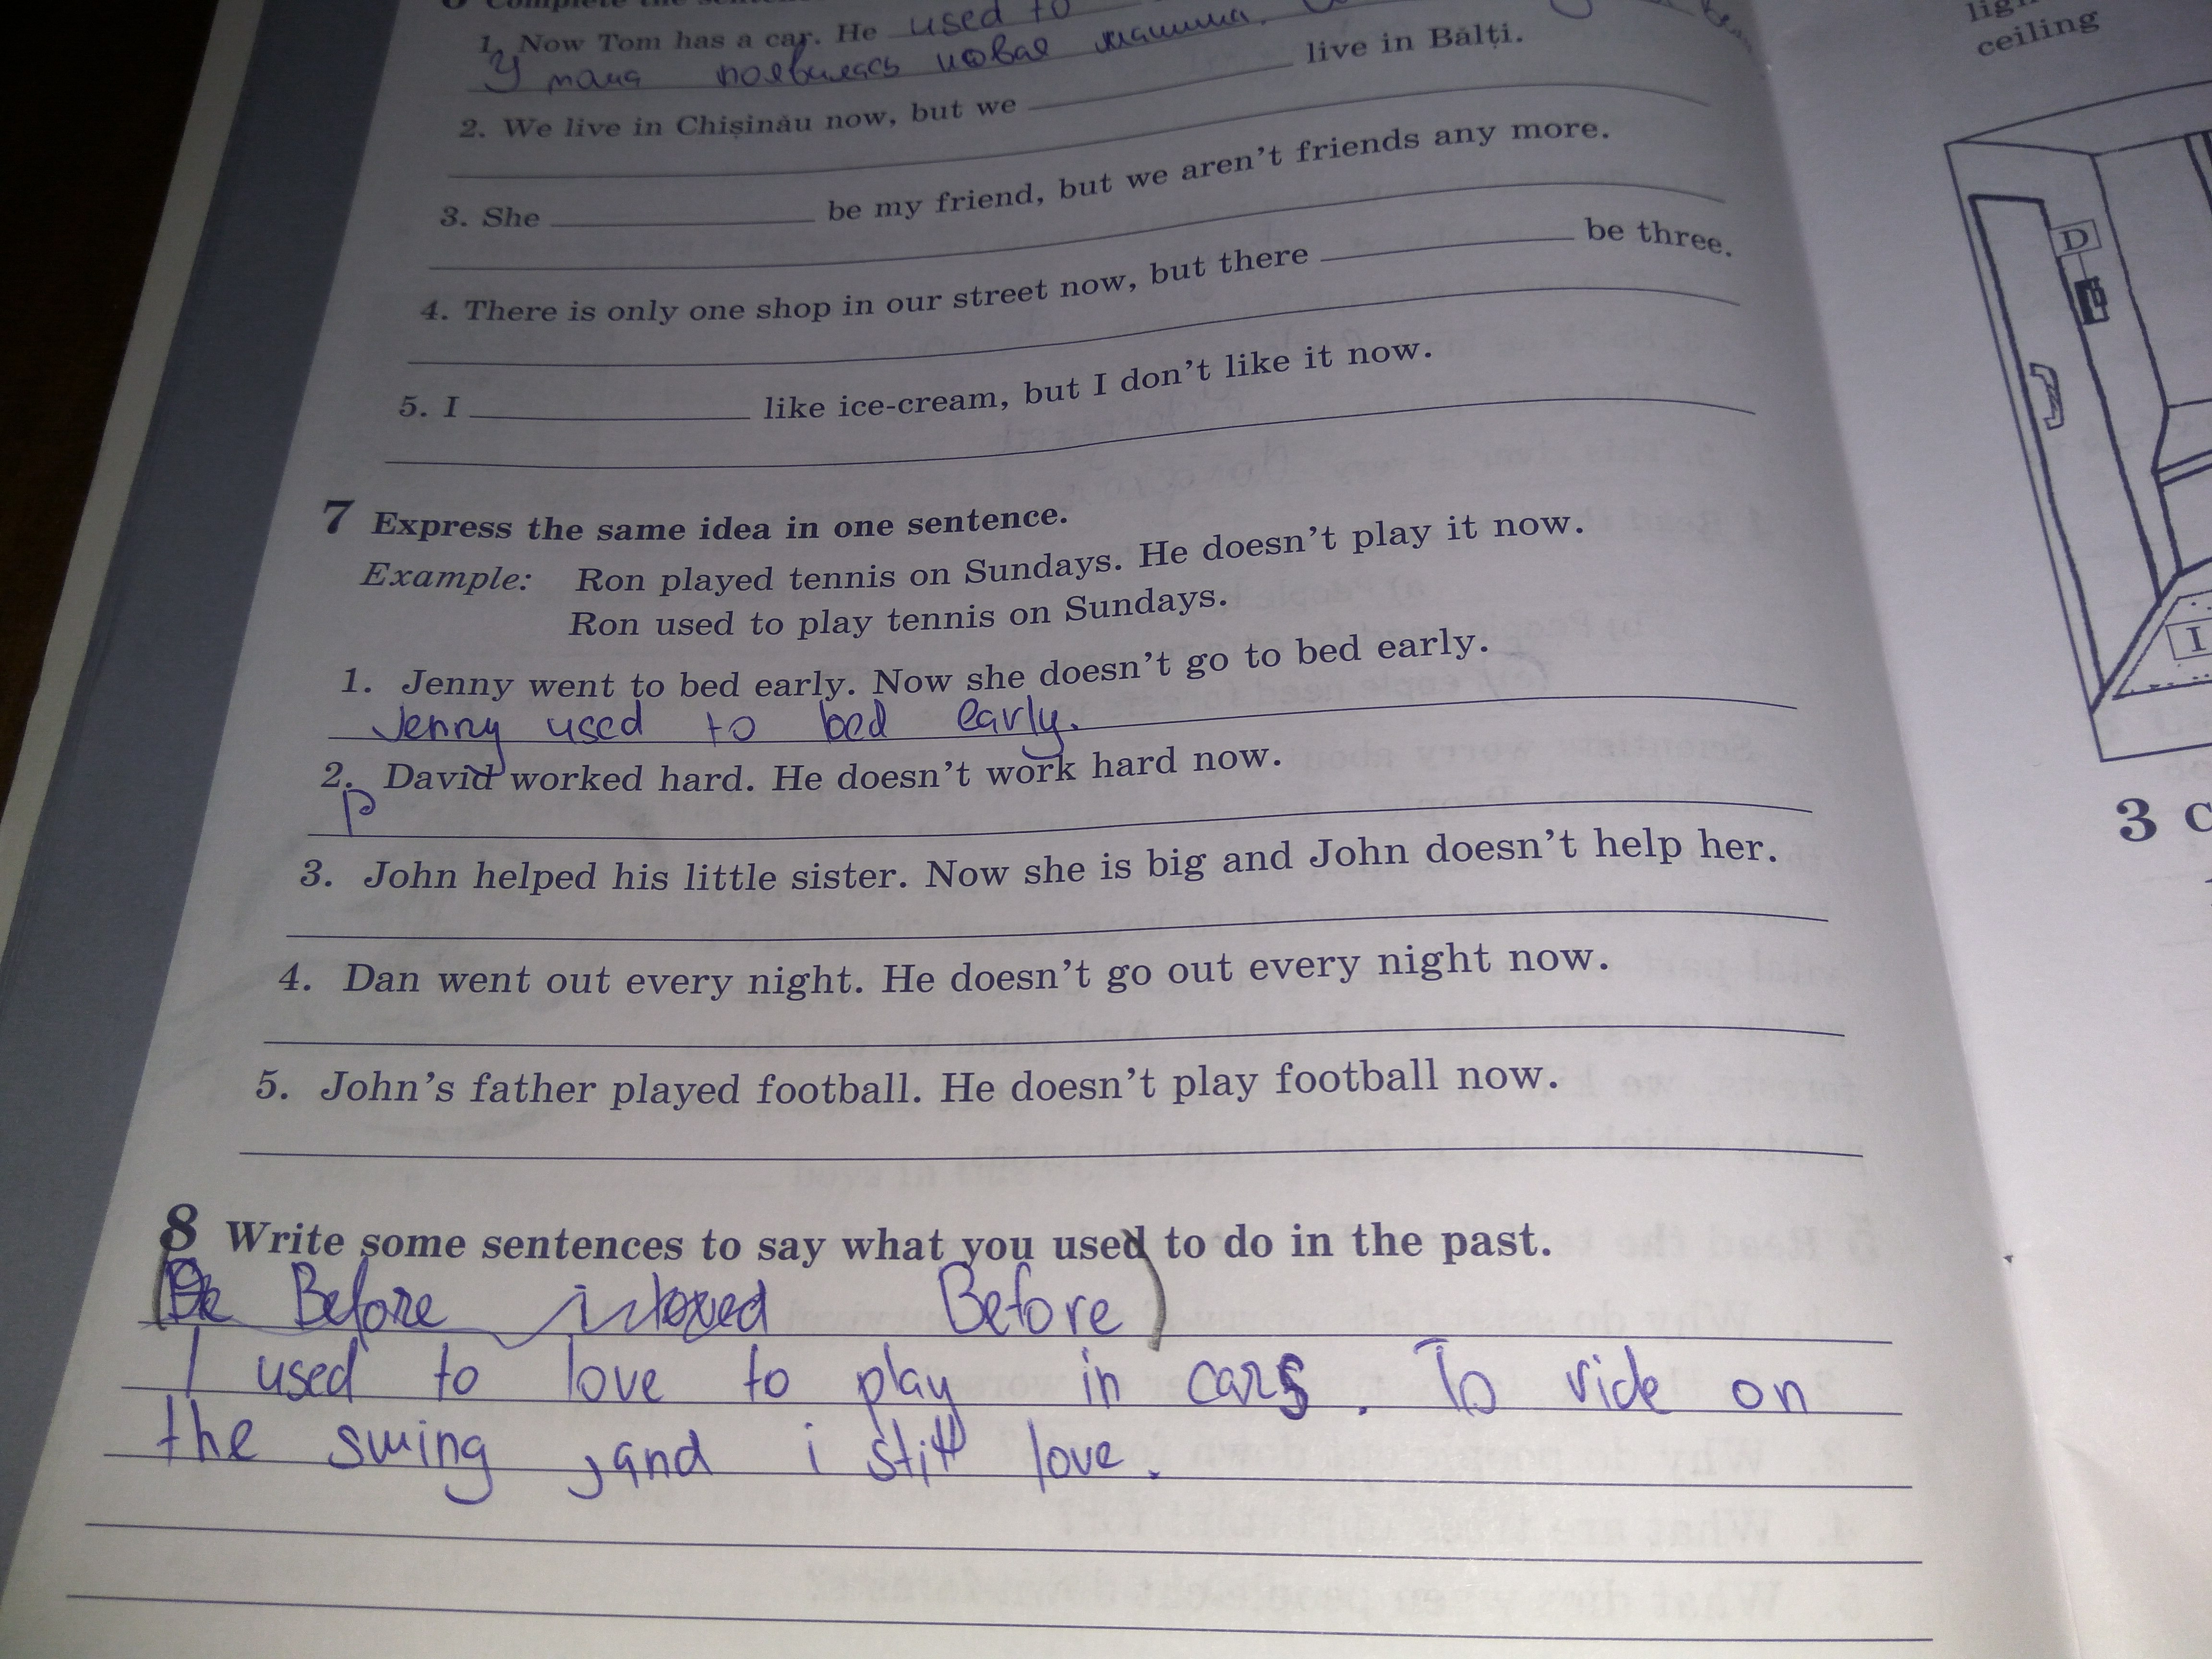 1. Now Tom has a car. He used to
У мана появилась новая машина.
2. We live in Chișinău now, but we ______ live in Bălți.
3. She ______ be my friend, but we aren't friends any more.
4. There is only one shop in our street now, but there ______ be three.
5. I ______ like ice-cream, but I don't like it now.
7 Express the same idea in one sentence.
Example: Ron played tennis on Sundays. He doesn't play it now.
Ron used to play tennis on Sundays.
1. Jenny went to bed early. Now she doesn't go to bed early.
Jenny used to bed early.
2. David worked hard. He doesn't work hard now.
3. John helped his little sister. Now she is big and John doesn't help her.
4. Dan went out every night. He doesn't go out every night now.
5. John's father played football. He doesn't play football now.
8 Write some sentences to say what you used to do in the past.
Before Before
I used to love to play in cars. To ride on
the swing, and i still love.
ceiling
D
I
3 C